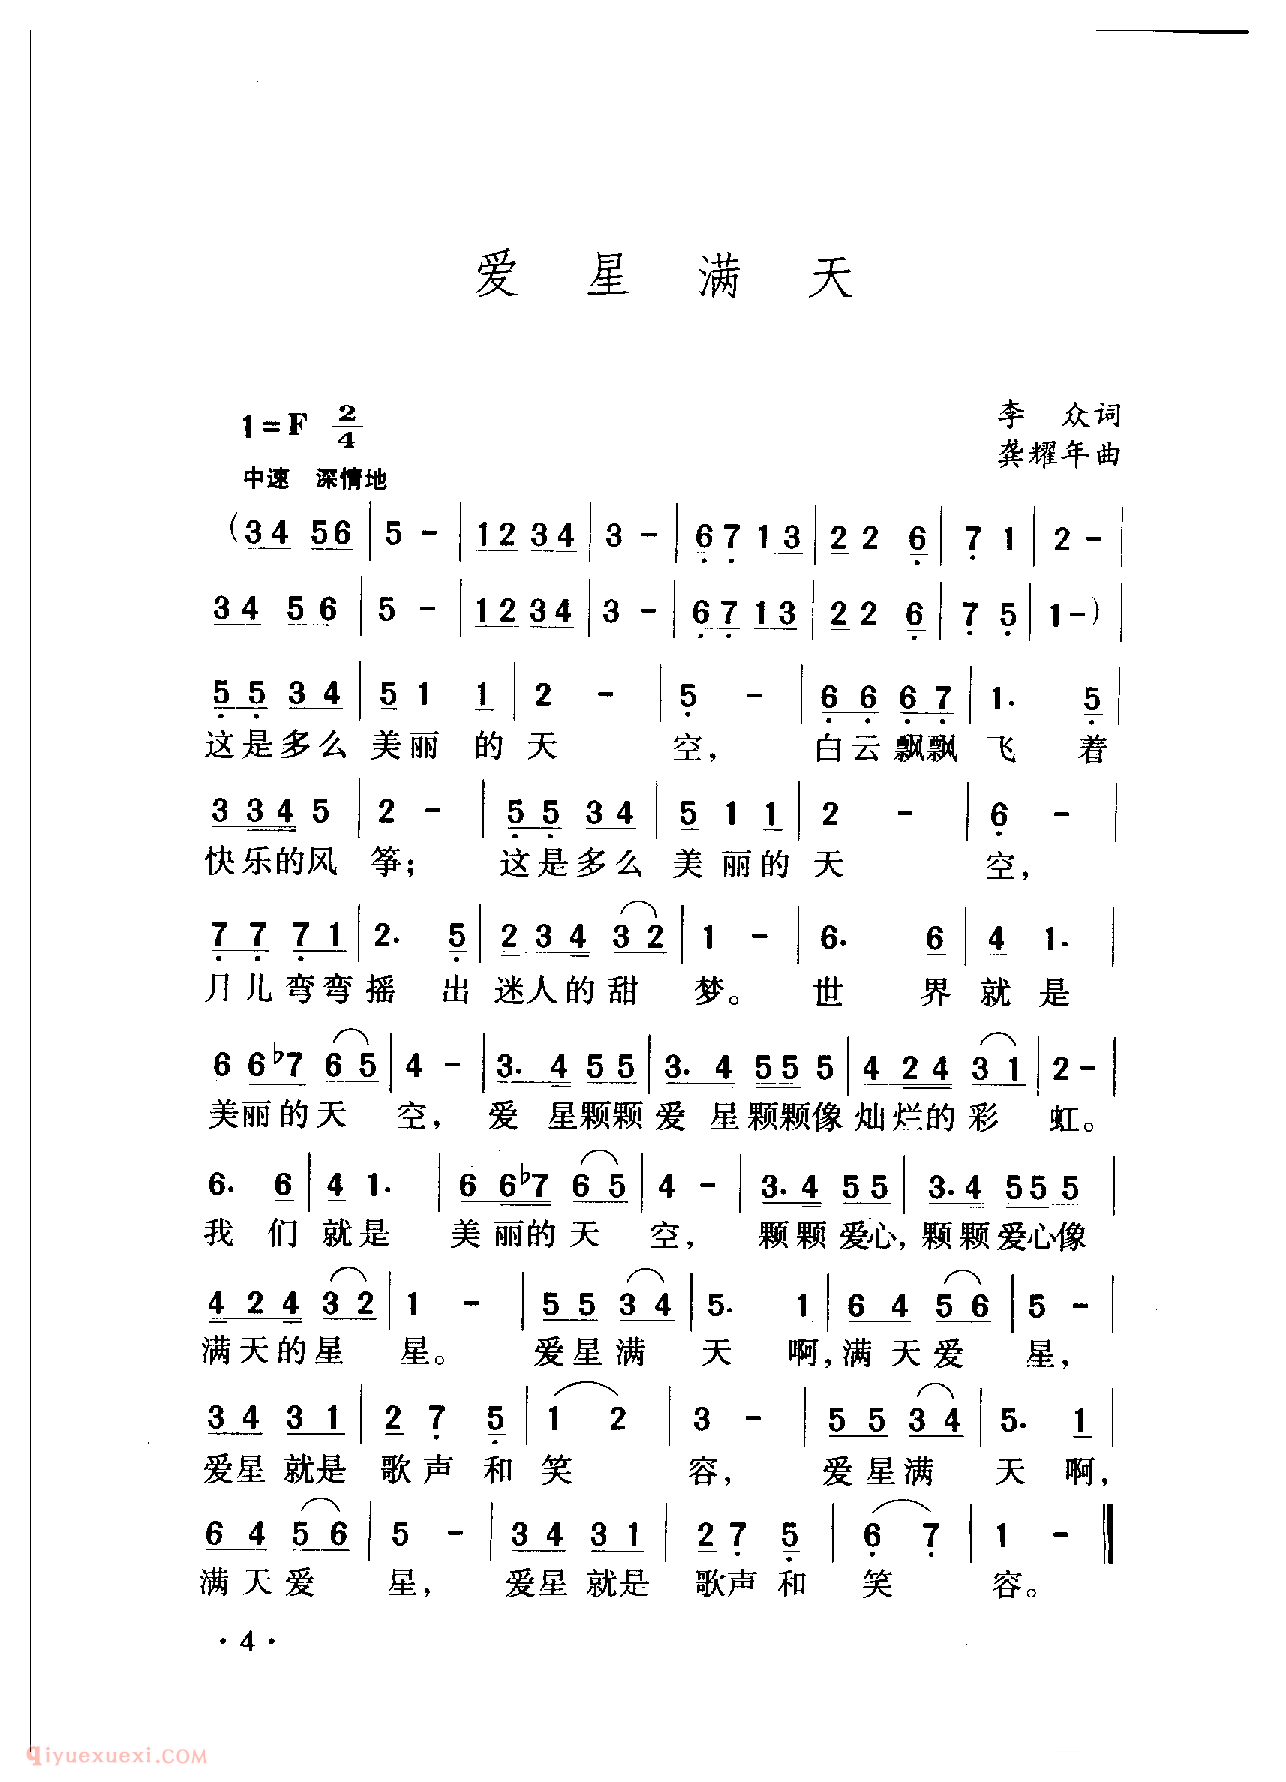 爱星满天
1=F 2/4
李 众词
龚耀年曲
中速 深情地
(34 56 | 5 - | 1234 | 3 - | 67 13 | 2 2 6 | 7 1 | 2 - |
34 56 | 5 - | 1234 | 3 - | 67 13 | 2 2 6 | 7 5 | 1 - ) |
5 5 3 4 | 5 1 1 | 2 - | 5 - | 6 6 6 7 | 1. 5 |
这是多么 美丽 的 天 空, 白云飘飘 飞 着
3 3 4 5 | 2 - | 5 5 3 4 | 5 1 1 | 2 - | 6 - |
快乐的风 筝; 这是多么 美 丽的 天 空,
7 7 7 1 | 2. 5 | 2 3 4 3 2 | 1 - | 6. 6 | 4 1. |
月儿弯弯摇 出 迷人的甜 梦。 世 界 就 是
6 6 ♭7 6 5 | 4 - | 3. 4 5 5 | 3. 4 5 5 5 | 4 2 4 3 1 | 2 - |
美丽的天 空, 爱 星颗颗 爱 星颗颗像 灿烂的彩 虹。
6. 6 | 4 1. | 6 6 ♭7 6 5 | 4 - | 3. 4 5 5 | 3. 4 5 5 5 |
我 们 就是 美丽的天 空, 颗颗爱心, 颗颗爱心像
4 2 4 3 2 | 1 - | 5 5 3 4 | 5. 1 | 6 4 5 6 | 5 - |
满天的星 星。 爱星满 天 啊, 满天爱 星,
3 4 3 1 | 2 7 5 | 1 2 | 3 - | 5 5 3 4 | 5. 1 |
爱星就是 歌声 和 笑 容, 爱星满 天 啊,
6 4 5 6 | 5 - | 3 4 3 1 | 2 7 5 | 6 7 | 1 - ‖
满天爱 星, 爱星就是 歌声和 笑 容。
·4·
qiyuexuexi.COM